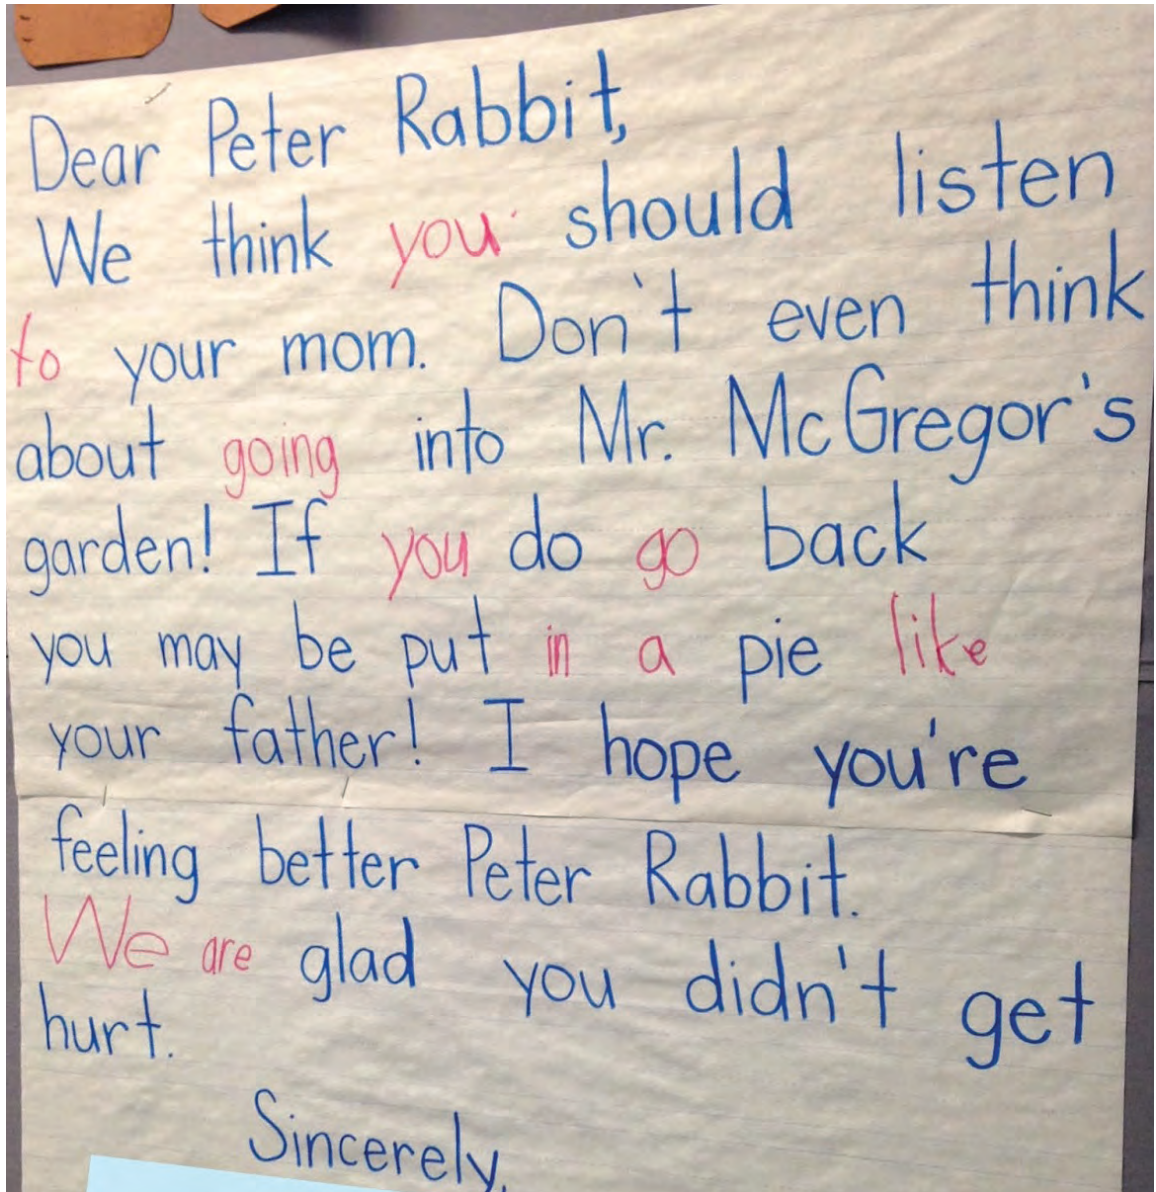 Dear Peter Rabbit,
We think you should listen
to your mom. Don't even think
about going into Mr. McGregor's
garden! If you do go back
you may be put in a pie like
your father! I hope you're
feeling better Peter Rabbit.
We are glad you didn't get
hurt.
Sincerely,